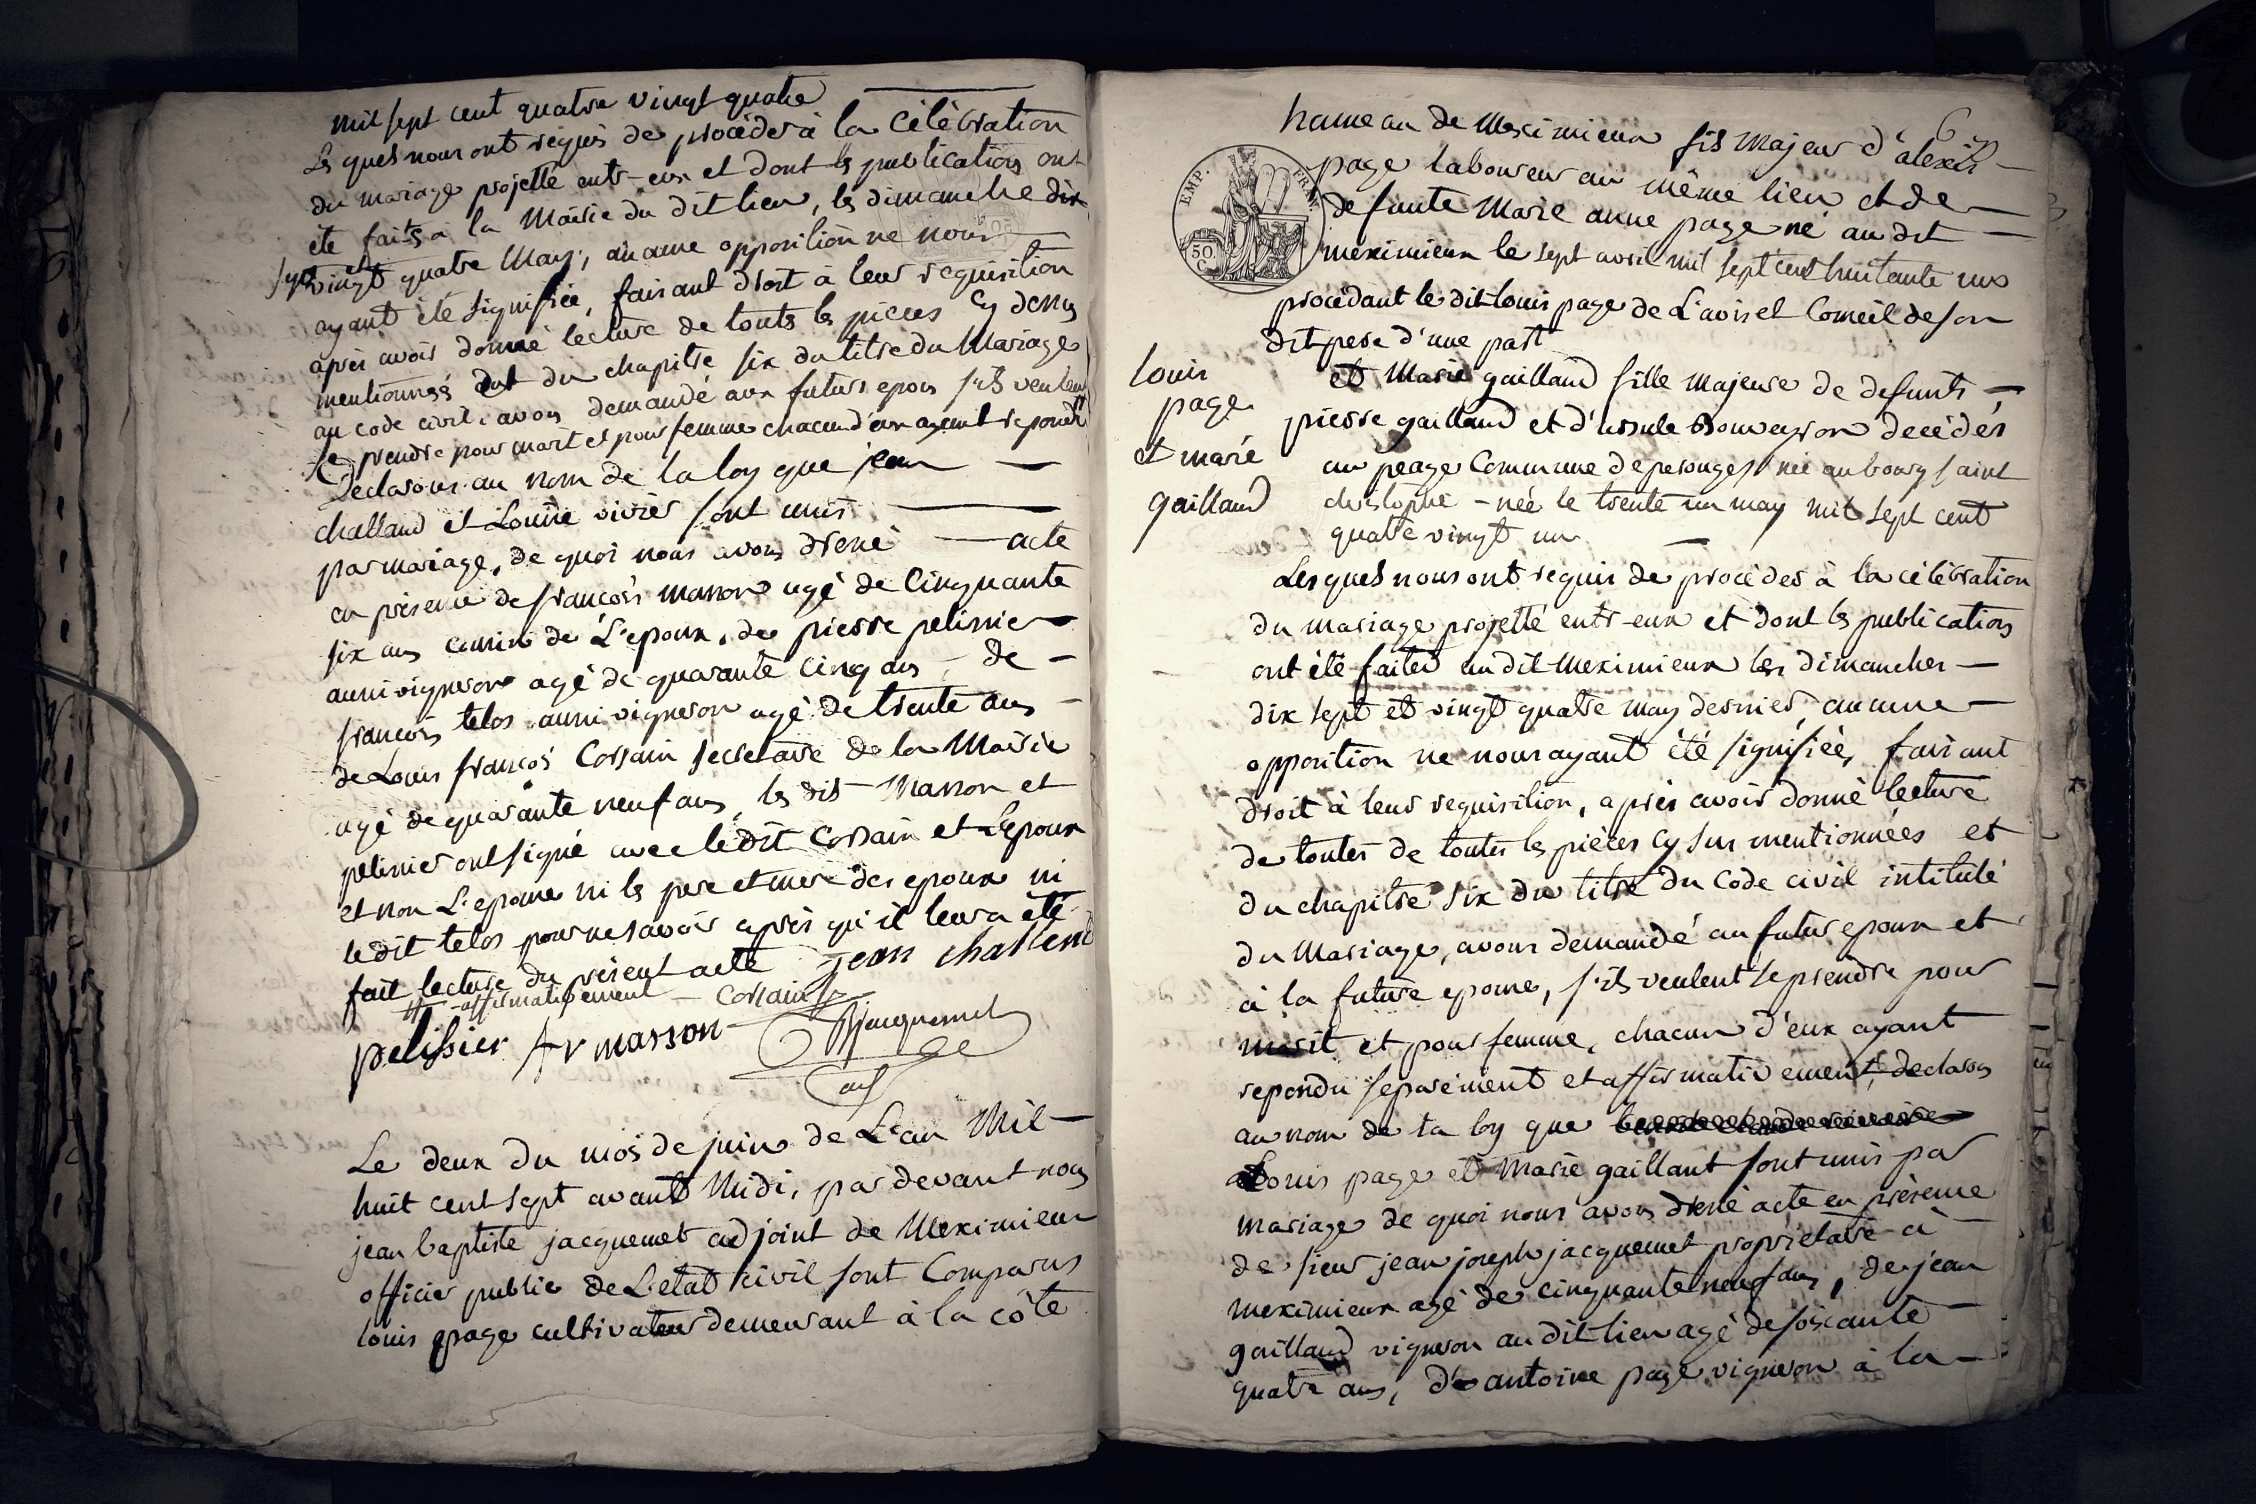 mil sept cent quatre vingt quatre
Lesquels nous ont requis de procéder à la célébration
du mariage projetté entr-eux et dont les publications ont
été faits à la Mairie du dit lieu, les dimanche dix
sept et vingt quatre May, aucune opposition ne nous
ayant été signifiée, faisant droit à leur requisition
après avoir donné lecture de touts les pieces cy dessus
mentionnés du chapitre six du titre du Mariage
au code civil, avons demandé aux futurs epoux s'ils veulent
se prendre pour marit et pour femme chacun d'eux ayant repondu
Declarons au nom de la loy que jean
challand et Louise vivier sont unis
par mariage, de quoi nous avons dressé acte
en présence de françois masson agé de Cinquante
six ans cousin de L'epoux, de pierre pelissier
aussi vigneron agé de quarante cinq ans de
françois telos aussi vigneron agé de trente ans
de Louis françois Corsain secretaire de la Mairie
agé de quarante neuf ans, les dits Masson et
pelissier ont signé avec le dit Corsain et L'epoux
et non L'epouse ni les pere et mere des epoux ni
le dit telos pour ne savoir après qu'il leur a été
fait lecture du présent acte jean challend
affirmativement Corsain
pelissier fr masson Jacquemet
adj
Le deux du mois de juin de L'an Mil
huit cent sept avant Midi, par devant nous
jean baptiste jacquemet adjoint de Meximieux
officier public de L'etat civil sont Comparus
louis page cultivateur demeurant à la côte
6
hameau de Meximieux fils Majeur d'alexis
EMP. FRAN.
50 C
page laboureur au même lieu et de
defunte Marie anne page né au dit
meximieux le sept avril mil sept cent huitante
procédant le dit louis page de L'avis et Conseil de son
dit pere d'une part
louis
page
et marie
gaillaud
et Marie gaillaud fille majeure de defunts
pierre gaillaud et d'ursule decédés
au peage Commune de perouges née au bourg saint
christophe - née le trente un may mil sept cent
quatre vingt un
Lesquels nous ont requis de procéder à la célébration
du mariage projetté entr-eux et dont les publications
ont été faites au dit Meximieux les dimanches
dix sept et vingt quatre may dernier, aucune
opposition ne nous ayant été signifiée, faisant
droit à leur requisition, après avoir donné lecture
de toutes de toutes les pièces cy sus mentionnées et
du chapitre six du titre du Code civil intitulé
du Mariage, avons demandé au futur epoux et
à la future epouse, s'ils veulent se prendre pour
marit et pour femme, chacun d'eux ayant
repondu separément et affirmativement, declarons
au nom de la loy que
Louis page et Marie gaillant sont unis par
mariage de quoi nous avons dressé acte en présence
de sieur jean joseph jacquemet proprietaire à
meximieux agé de cinquante neuf ans, de jean
gaillaud vigneron au dit lieu agé de soixante
quatre ans, d'antoine page vigneron à la